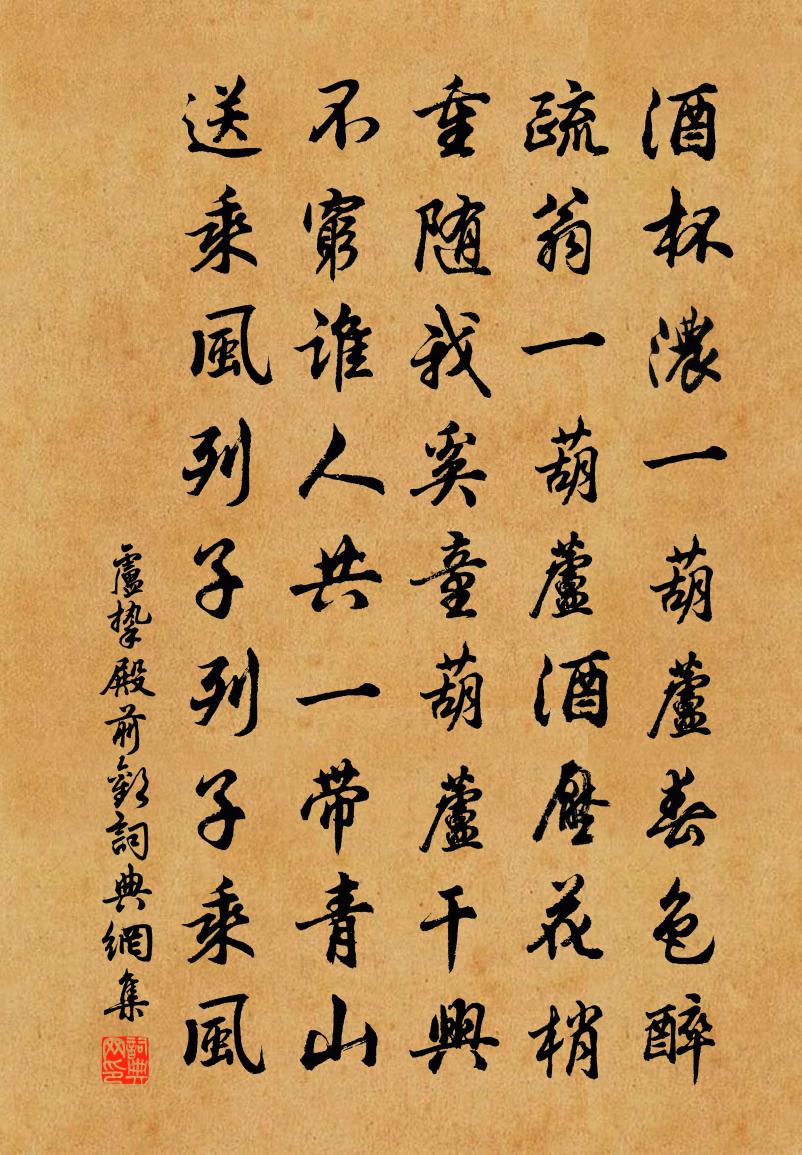 酒杯濃一葫蘆春色醉
疏翁一葫蘆酒壓花梢
重随我奚童葫蘆干興
不窮誰人共一带青山
送乘風列子列子乘風
盧摯殿前歡詞典網集
詞典网印